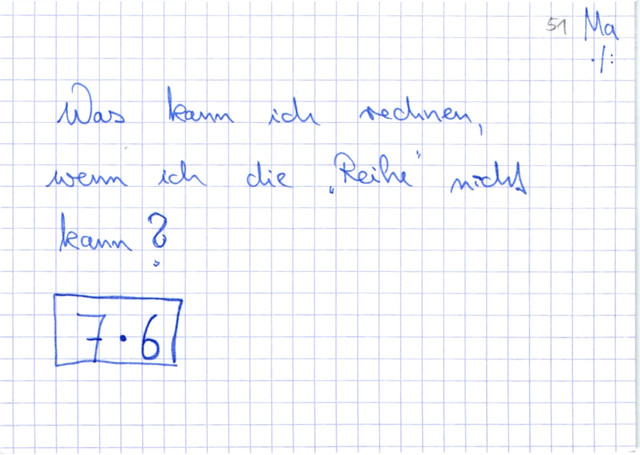 51 Ma
·/:
Was kann ich rechnen,
wenn ich die „Reihe“ nicht
kann?
7·6